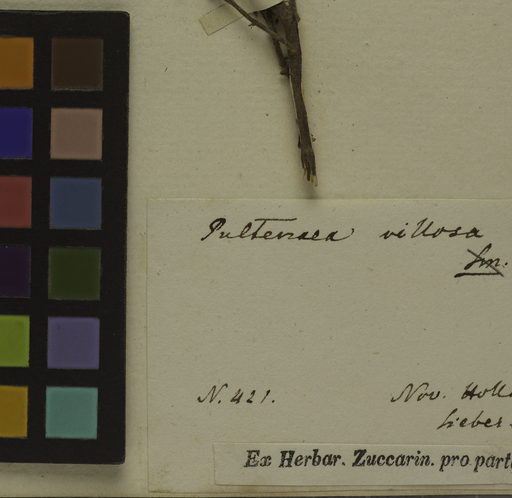 Pultenaea villosa
Sm.
N. 421.
Nov. Holl
Sieber
Ex Herbar. Zuccarin. pro part